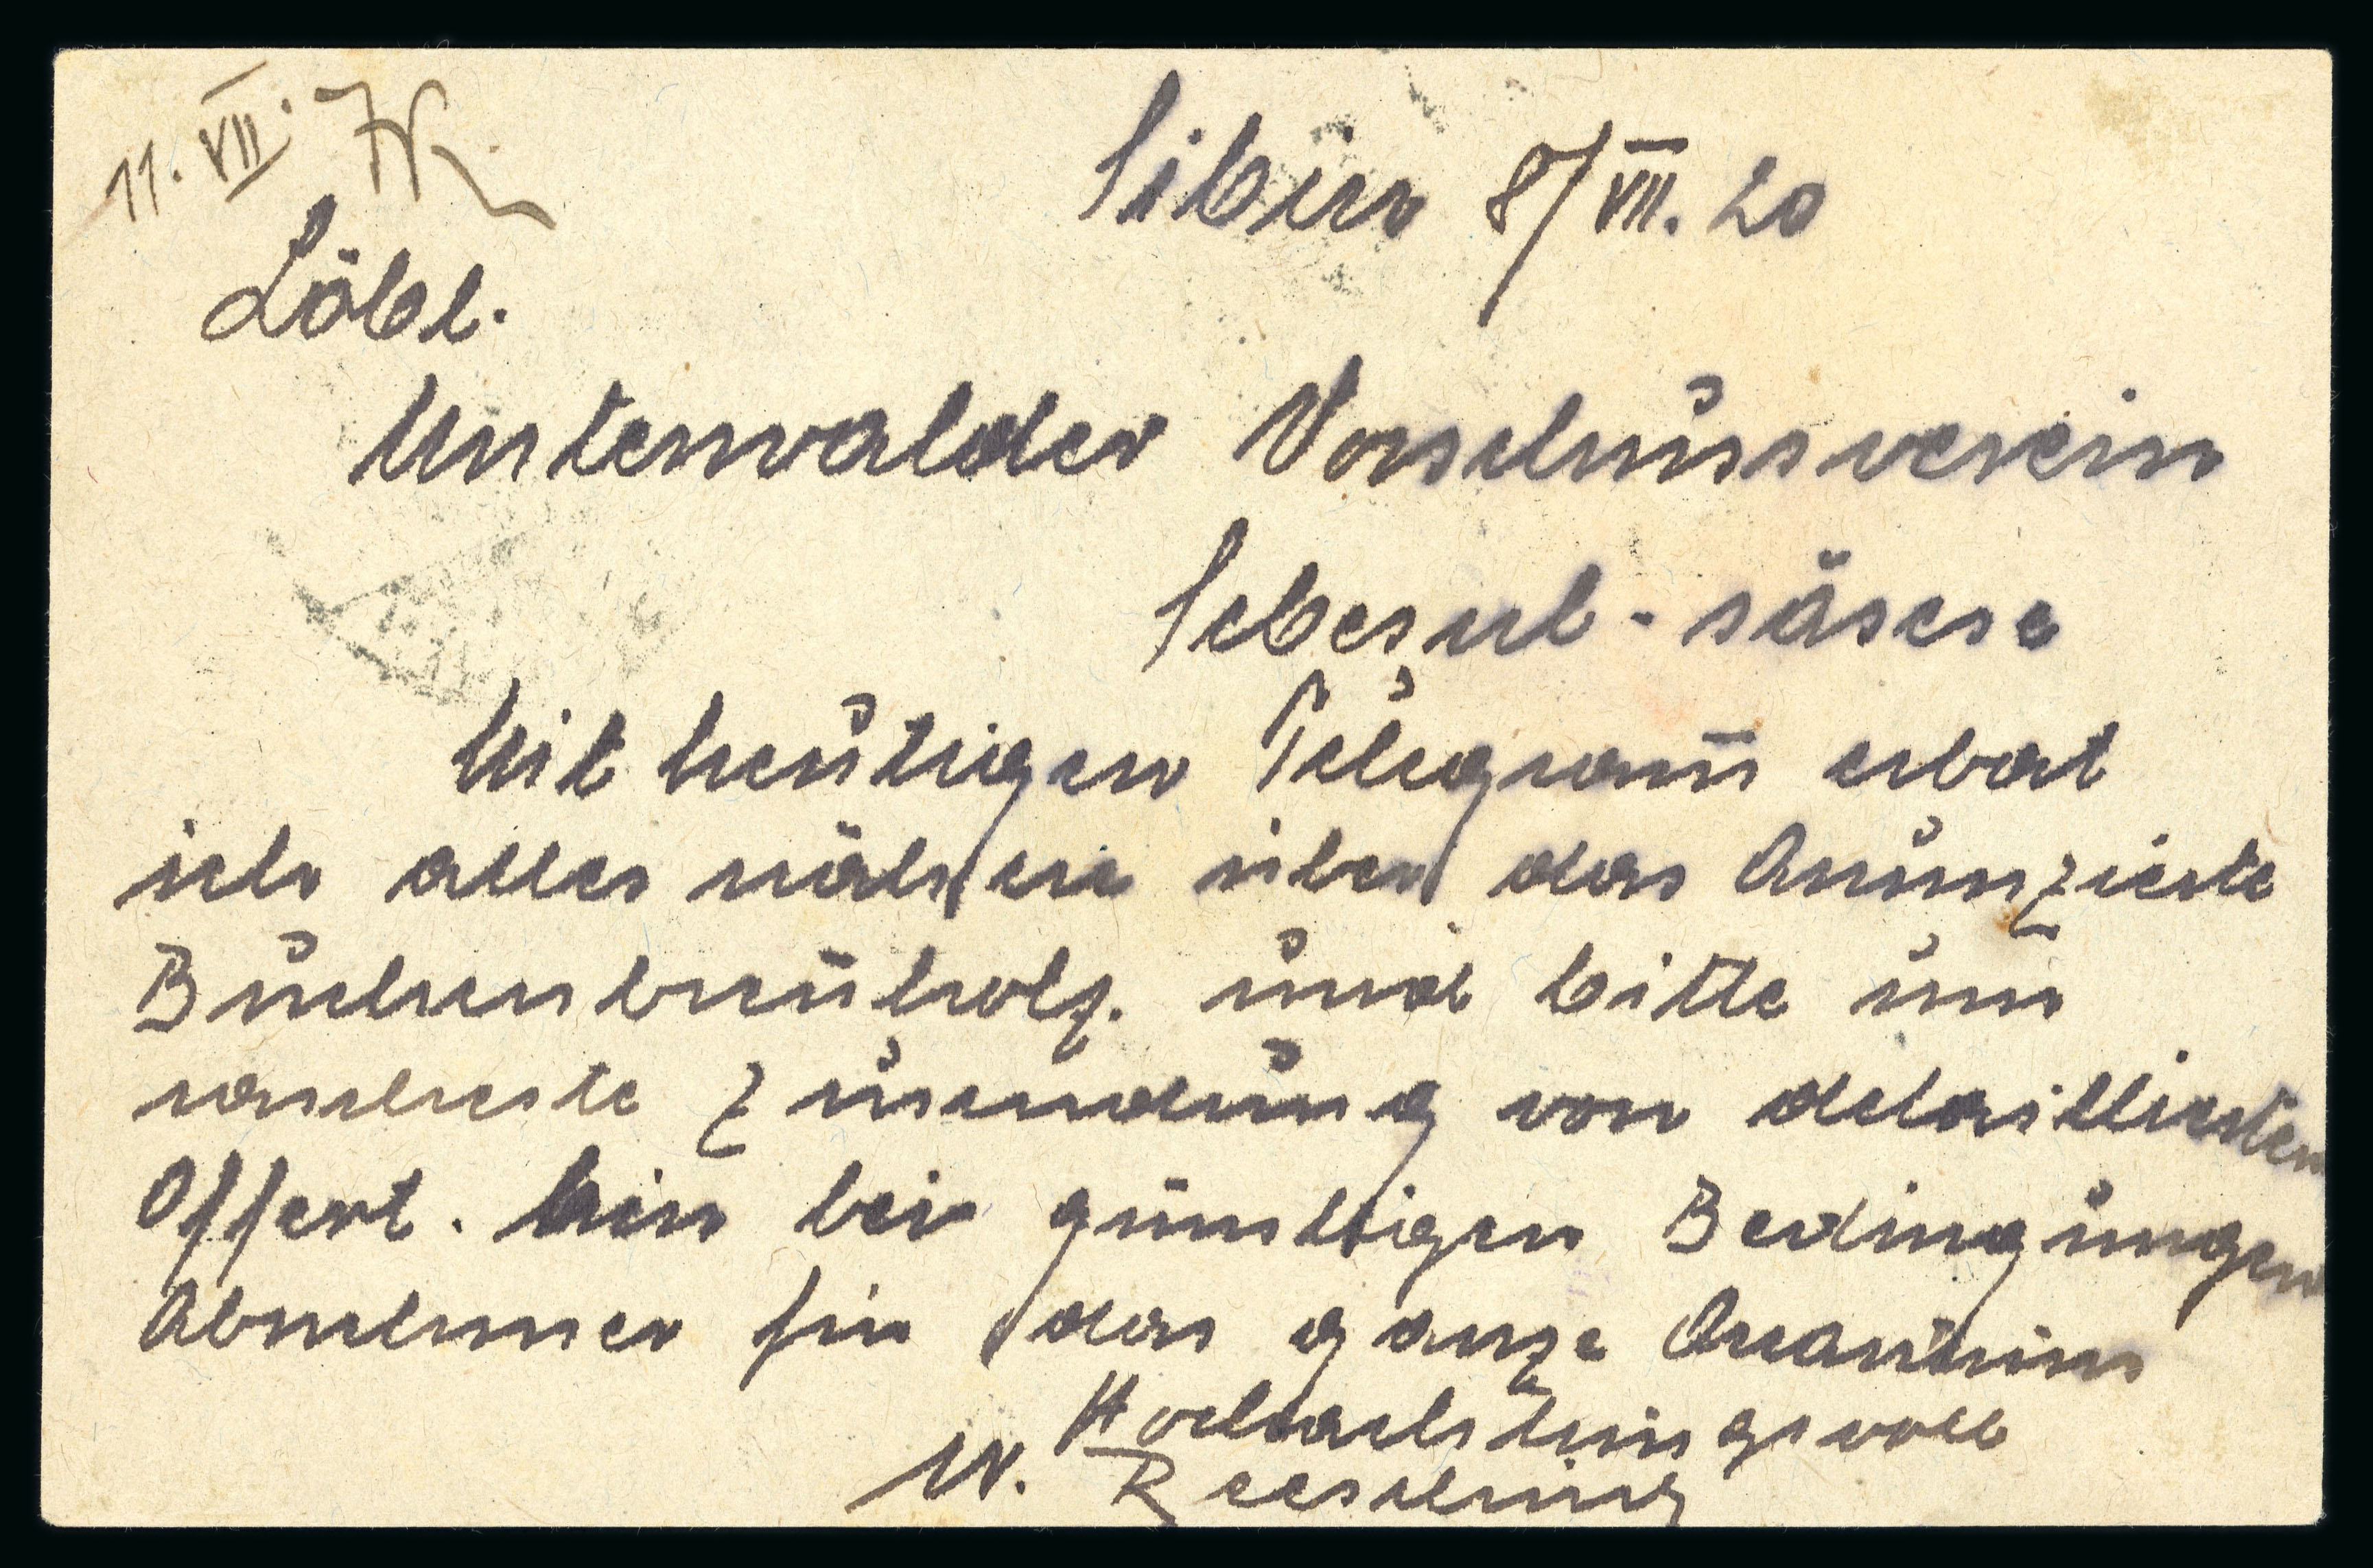 11. VII.
Sibiu 8/VII. 20
Löbl.
Unterwalder Vorschussverein
Sebeșul-săsesc
Mit heutigen Telegram̅ erbat
ich alles nähere über das Anunzierte
Buchenbrenholz. und bitte um
rascheste Zusendung von detailliertem
Offert. Bin bei günstigen Bedingungen
Abnehmer für das ganze Quantum
Hochachtungsvoll
M.